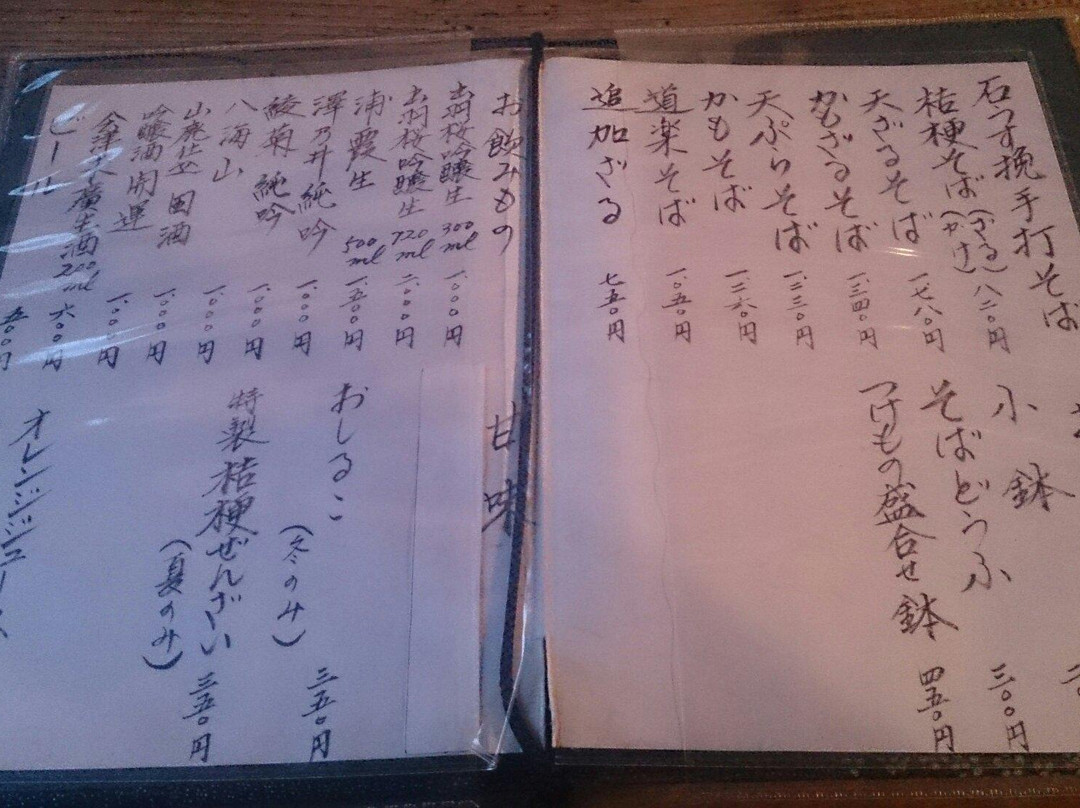 石うす挽手打そば
桔梗そば(ざる)(かけ) 八二〇円
天ざるそば 一、七八〇円
かもざるそば 一、三四〇円
天ぷらそば 円
かもそば 一、二六〇円
道楽そば 一、〇五〇円
追加ざる 七五〇円
小鉢
そばどうふ 三〇〇円
つけもの盛合せ鉢 四五〇円
お飲みもの
出羽桜吟醸生 300ml 一、〇〇〇円
出羽桜吟醸生 720ml 二、〇〇〇円
浦霞生 500ml 一、五〇〇円
澤乃井純吟 一、〇〇〇円
綾菊純吟 一、〇〇〇円
八海山 一、〇〇〇円
山廃仕込 田酒 一、〇〇〇円
吟醸酒開運 一、〇〇〇円
会津大廣生酒 200ml 六〇〇円
ビール 五〇〇円
甘味
おしるこ (冬のみ) 三五〇円
特製桔梗ぜんざい (夏のみ) 三五〇円
オレンジジュース